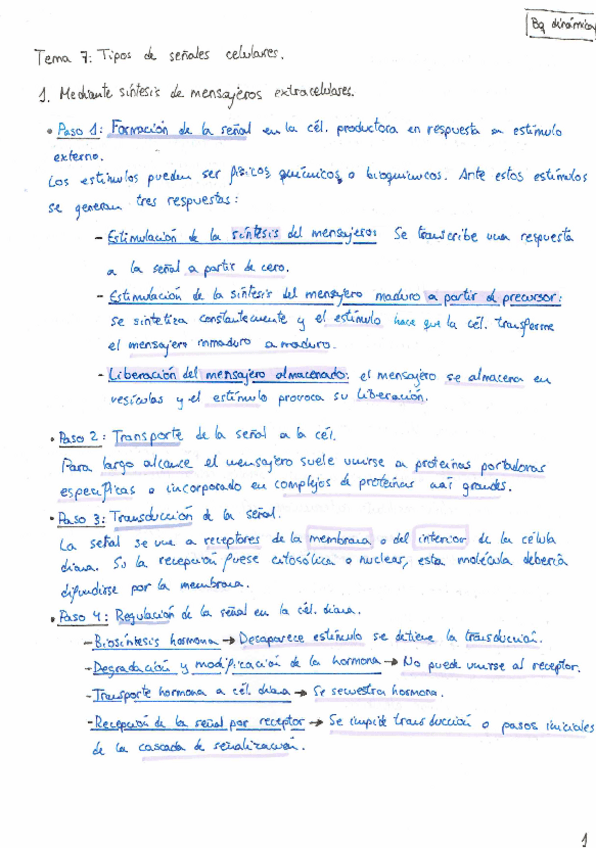 Bq dinámica
Tema 7: Tipos de señales celulares.
1. Mediante síntesis de mensajeros extracelulares.
• Paso 1: Formación de la señal en la cél. productora en respuesta a un estímulo
externo.
Los estímulos pueden ser físicos químicos o bioquímicos. Ante estos estímulos
se generan tres respuestas:
- Estimulación de la síntesis del mensajero: Se transcribe una respuesta
a la señal a partir de cero.
- Estimulación de la síntesis del mensajero maduro a partir del precursor:
se sintetiza constantemente y el estímulo hace que la cél. transforme
el mensajero inmaduro a maduro.
- Liberación del mensajero almacenado: el mensajero se almacena en
vesículas y el estímulo provoca su liberación.
• Paso 2: Transporte de la señal a la cél.
Para largo alcance el mensajero suele unirse a proteínas portadoras
específicas o incorporado en complejos de proteínas más grandes.
• Paso 3: Transducción de la señal.
La señal se une a receptores de la membrana o del interior de la célula
diana. Si la recepción fuese citosólica o nuclear, esta molécula debería
difundirse por la membrana.
• Paso 4: Regulación de la señal en la cél. diana.
- Biosíntesis hormona → Desaparece estímulo se detiene la transducción.
- Degradación y modificación de la hormona → No puede unirse al receptor.
- Transporte hormona a cél. diana → Se secuestra hormona.
- Recepción de la señal por receptor → Se impide transducción o pasos iniciales
de la cascada de señalización.
1